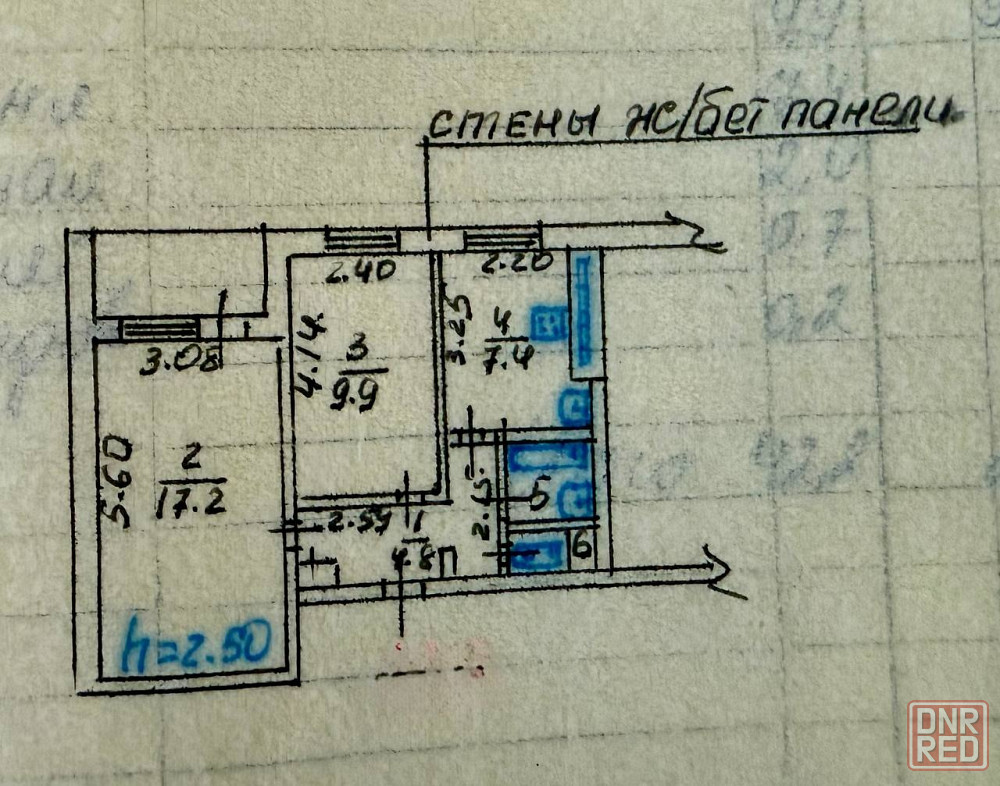 стены жс/бет панели
2.40
2.20
3.08
4.14
3
9.9
3.25
4
7.4
5.60
2
17.2
2.59
1
4.8
П
2.15
5
6
h=2.50
42.2
0.7
0.2
DNR
RED